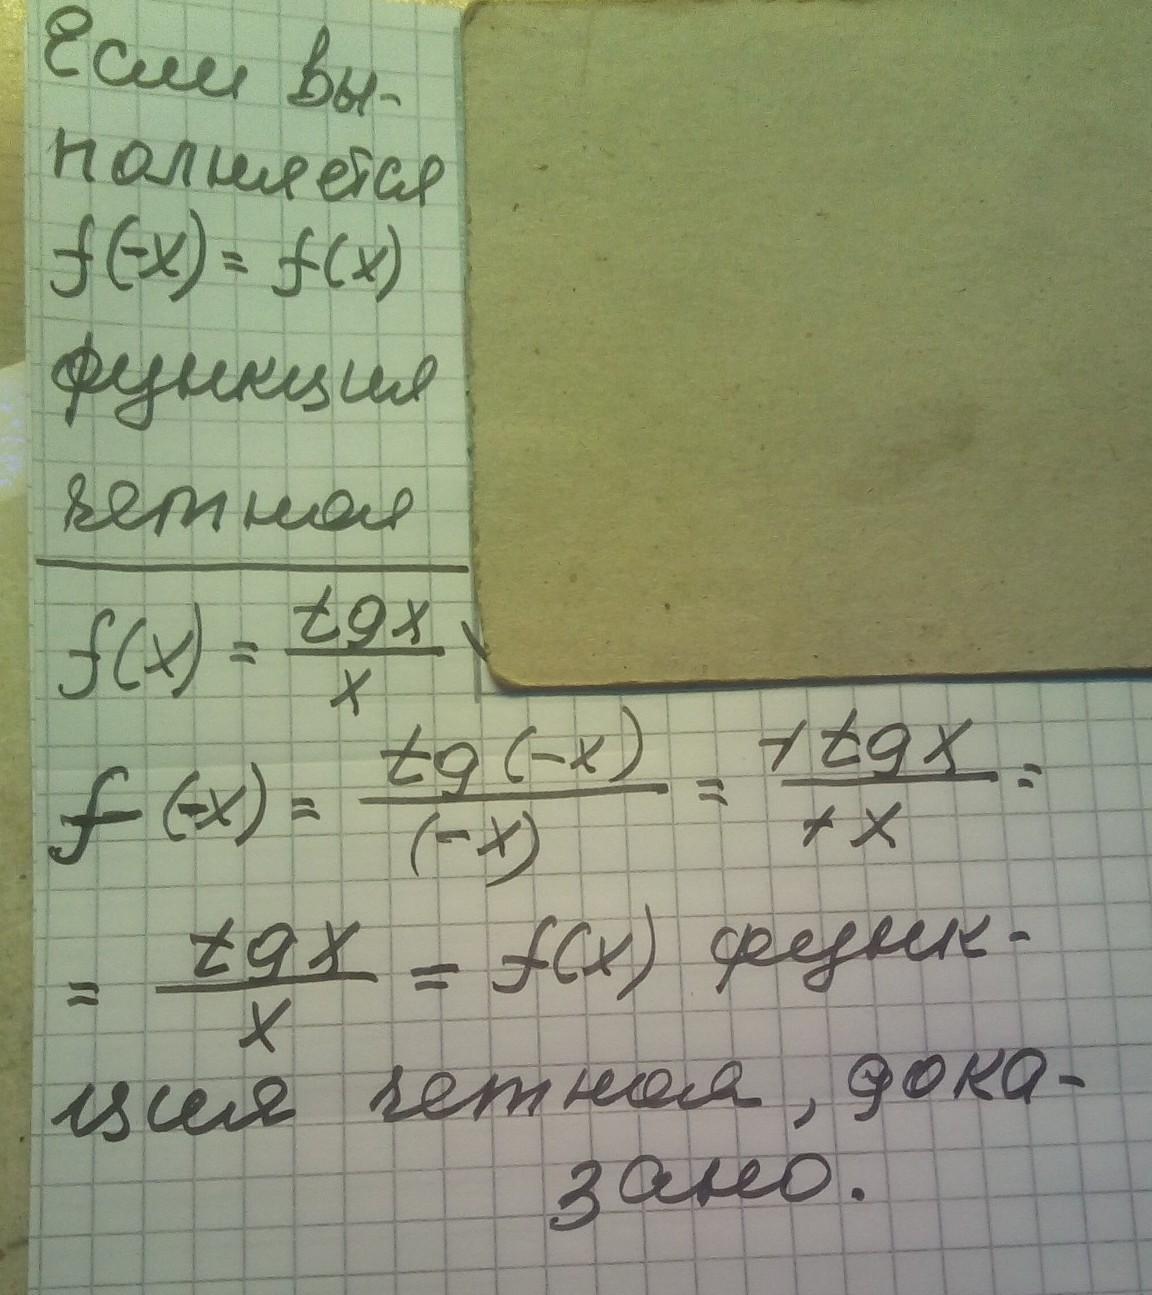 Если вы-
полняется
f(-x) = f(x)
функция
четная
f(x) = tgx / x
f(-x) = tg(-x) / (-x) = +tgx / +x =
= tgx / x = f(x) функ-
ция четная, дока-
зано.